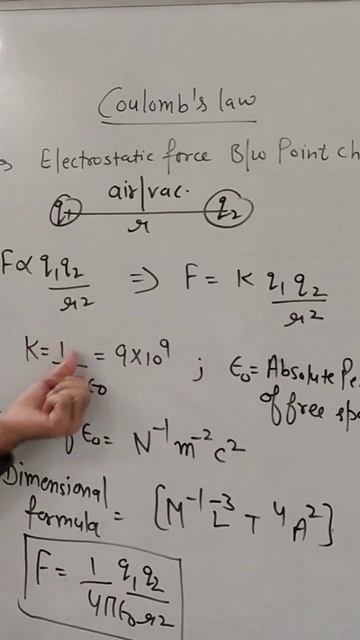 Coulomb's law
Electrostatic force B/w Point
air/vac.
q1 q2
r
F∝ q1q2/r² ⇒ F = K q1q2/r²
K = 1 = 9×10⁹ ; ε0 = Absolute
of free
ε0 = N⁻¹ m⁻² C²
Dimensional
formula = [M⁻¹ L⁻³ T⁴ A²]
F = 1/4πε0 q1q2/r²